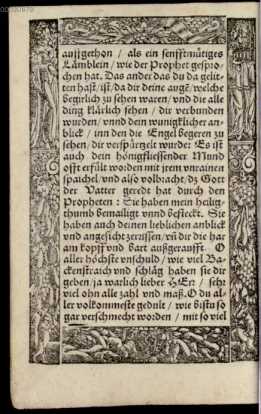 auffgethon / als ein senfftmütiges
Lämblein / wie der Prophet gespro-
chen hat. Das ander das du da gelit-
ten hast / ist / da dir deine augẽ / welche
begirlich zu sehen waren / vnd die alle
ding klärlich sehen / dir verbunden
wurden / vnnd dein wunigklicher an-
blick / inn den die Engel begeren zu
sehen / dir verspürzelt wurde: Es ist
auch dein hönigfliessender Mund
offt erfült worden mit jrem vnrainen
spaichel / vnd also volbracht / dz Gott
der Vatter geredt hat durch den
Propheten : Sie haben mein heilig-
thumb bemailigt vnnd befleckt. Sie
haben auch deinen lieblichen anblick
vnd angesicht zerrissen / vñ dir die har
am kopff vnd bart außgeraufft. O
aller höchste vnschuld / wie viel Ba-
ckenstraich vnd schläg haben sie dir
geben / ja warlich lieber HErr / sehr
viel ohn alle zahl vnd maß. O du al-
ler volkommeste gedult / wie bistu so
gar verschmecht worden / mit so viel